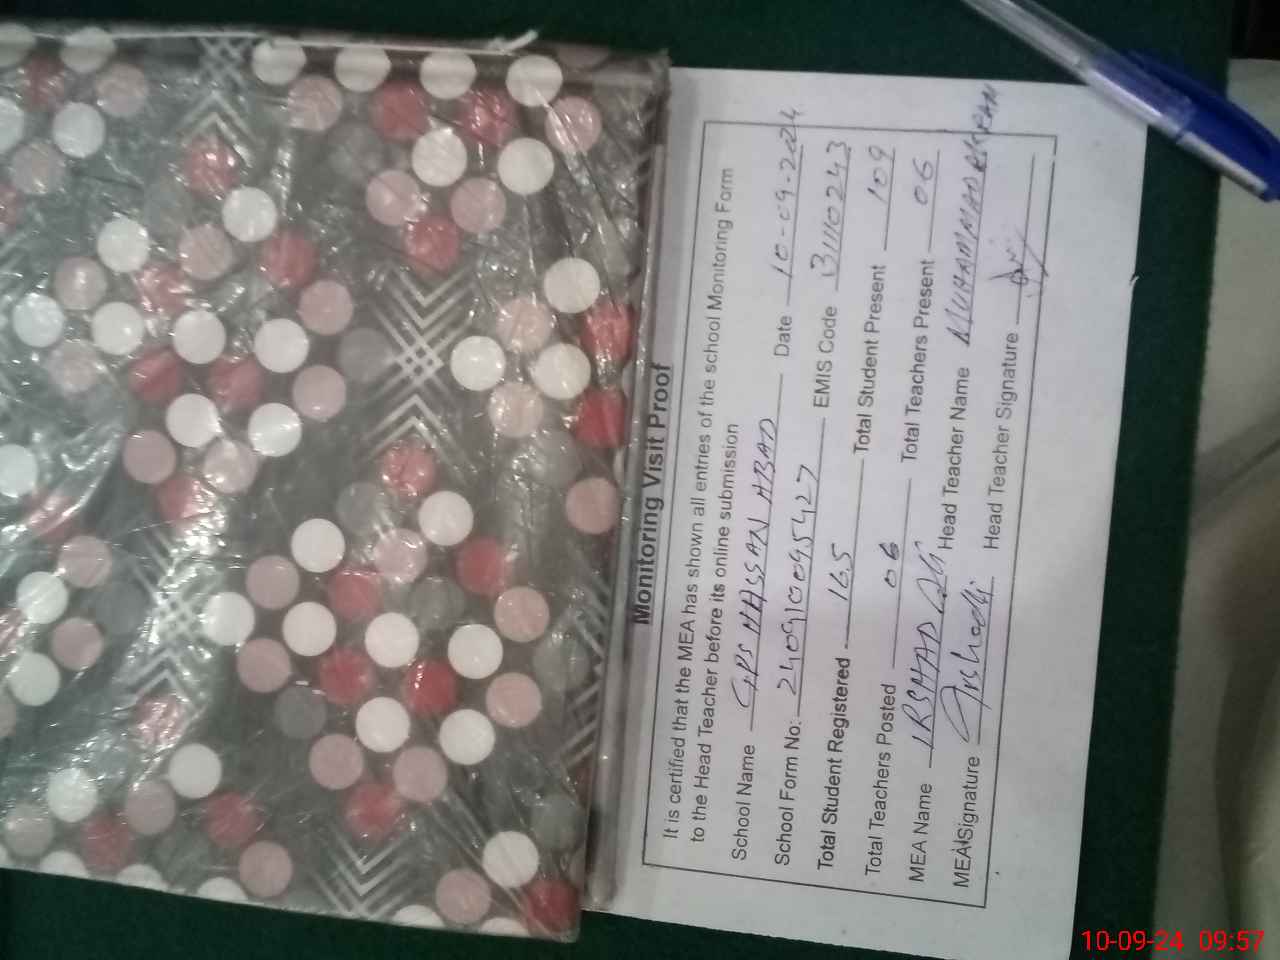 Monitoring Visit Proof
It is certified that the MEA has shown all entries of the school Monitoring Form
to the Head Teacher before its online submission
School Name GPS HASSAN ABAD Date 10-09-2024
School Form No: 2409100095427 EMIS Code 31110243
Total Student Registered 165 Total Student Present 109
Total Teachers Posted 06 Total Teachers Present 06
MEA Name IRSHAD ALI Head Teacher Name MUHAMMAD
MEA Signature Irshad Ali Head Teacher Signature
10-09-24 09:57